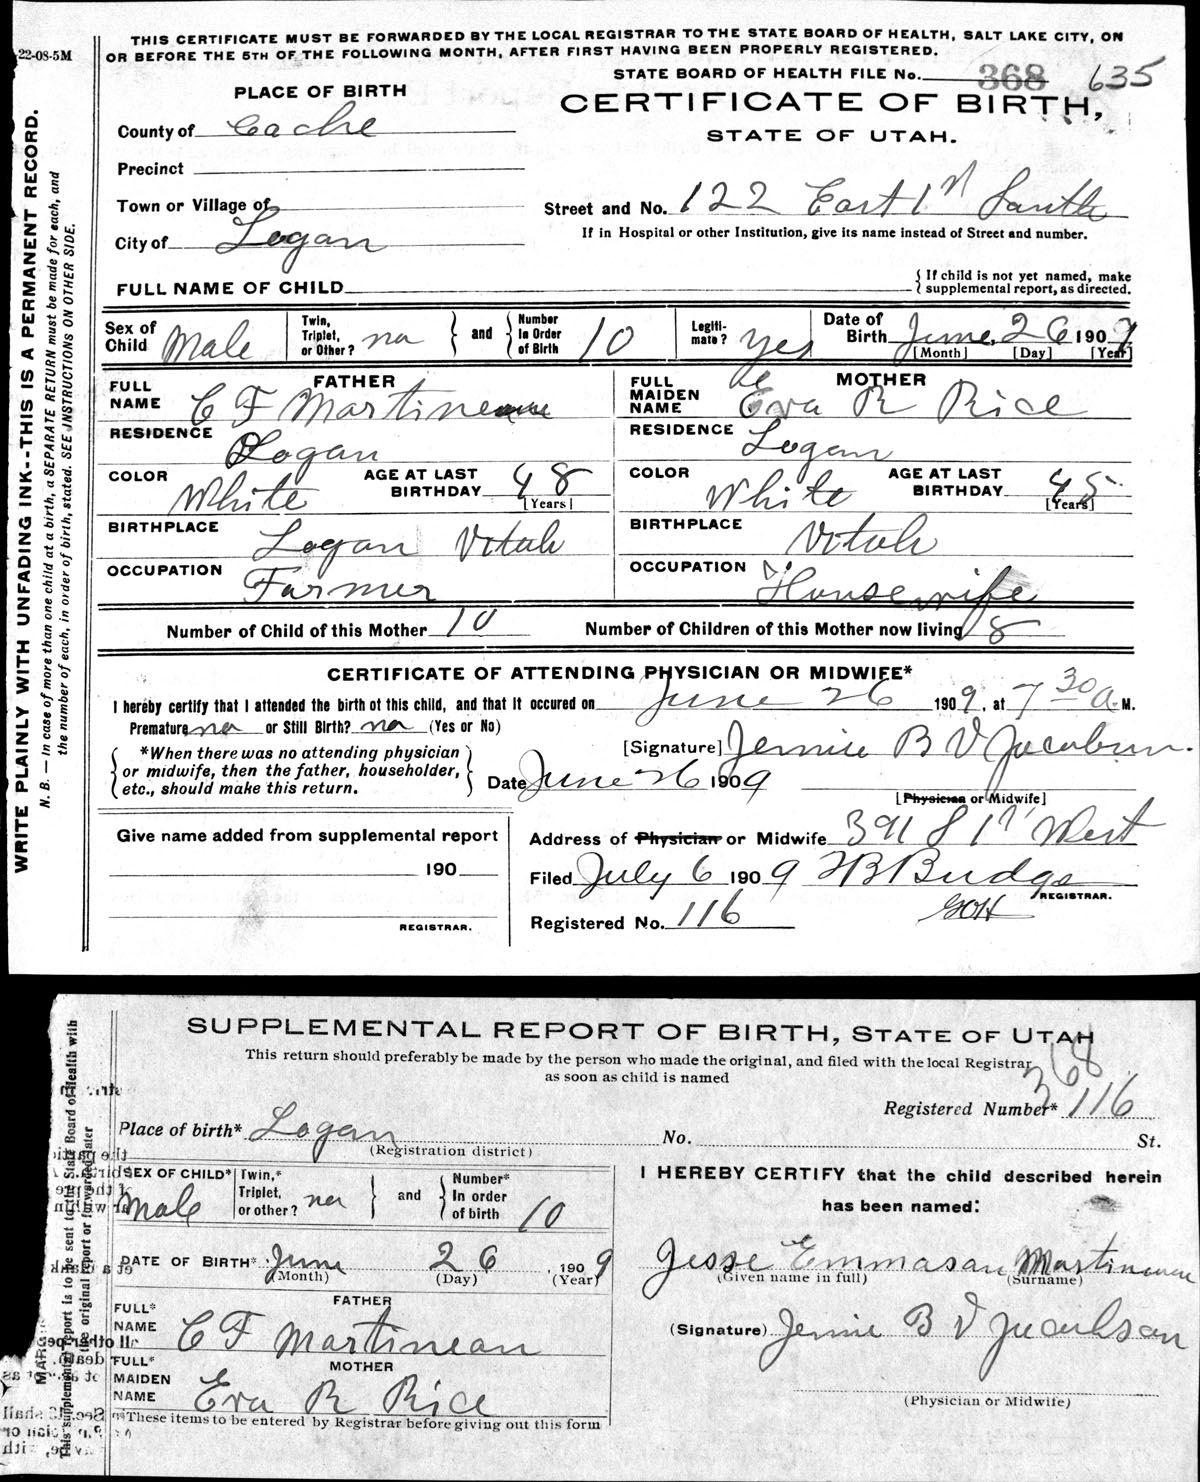 22-08-5M
THIS CERTIFICATE MUST BE FORWARDED BY THE LOCAL REGISTRAR TO THE STATE BOARD OF HEALTH, SALT LAKE CITY, ON
OR BEFORE THE 5TH OF THE FOLLOWING MONTH, AFTER FIRST HAVING BEEN PROPERLY REGISTERED.
STATE BOARD OF HEALTH FILE No. 368 635
PLACE OF BIRTH
CERTIFICATE OF BIRTH,
STATE OF UTAH.
County of Cache
Precinct
Town or Village of
Street and No. 122 East 1st South
City of Logan
If in Hospital or other Institution, give its name instead of Street and number.
FULL NAME OF CHILD
{ If child is not yet named, make
supplemental report, as directed.
WRITE PLAINLY WITH UNFADING INK--THIS IS A PERMANENT RECORD.
N. B. — In case of more than one child at a birth, a SEPARATE RETURN must be made for each, and
the number of each, in order of birth, stated. SEE INSTRUCTIONS ON OTHER SIDE.
Sex of Child Male
Twin, Triplet, or Other? no } and { Number In Order of Birth 10
Legiti-mate? yes
Date of Birth June 26 1909
[Month] [Day] [Year]
FATHER
FULL NAME C F Martineau
RESIDENCE Logan
COLOR White AGE AT LAST BIRTHDAY 48 [Years]
BIRTHPLACE Logan Utah
OCCUPATION Farmer
MOTHER
FULL MAIDEN NAME Eva R Rice
RESIDENCE Logan
COLOR White AGE AT LAST BIRTHDAY 45 [Years]
BIRTHPLACE Utah
OCCUPATION Housewife
Number of Child of this Mother 10 Number of Children of this Mother now living 8
CERTIFICATE OF ATTENDING PHYSICIAN OR MIDWIFE*
I hereby certify that I attended the birth of this child, and that it occured on June 26 1909, at 7 30 a. M.
Premature no or Still Birth? no (Yes or No)
{ *When there was no attending physician
or midwife, then the father, householder,
etc., should make this return. }
[Signature] Jennie B V Jacobson
Date June 26 1909
[Physician or Midwife]
Give name added from supplemental report
190
REGISTRAR.
Address of Physician or Midwife 391 S 1st West
Filed July 6 1909 TB Budge
REGISTRAR.
GOH
Registered No. 116
SUPPLEMENTAL REPORT OF BIRTH, STATE OF UTAH
This return should preferably be made by the person who made the original, and filed with the local Registrar
as soon as child is named
368
Registered Number* 116
Place of birth* Logan No. St.
(Registration district)
This supplemental report is to be sent to the State Board of Health with
the original report or forwarded later
SEX OF CHILD* Male
Twin,* Triplet, or other? no } and { Number* In order of birth 10
DATE OF BIRTH* June 26, 1909
(Month) (Day) (Year)
FATHER
FULL* NAME C F Martineau
MOTHER
FULL* MAIDEN NAME Eva R Rice
*These items to be entered by Registrar before giving out this form
I HEREBY CERTIFY that the child described herein
has been named:
Jesse Emmason Martineau
(Given name in full) (Surname)
(Signature) Jennie B V Jacobson
(Physician or Midwife)